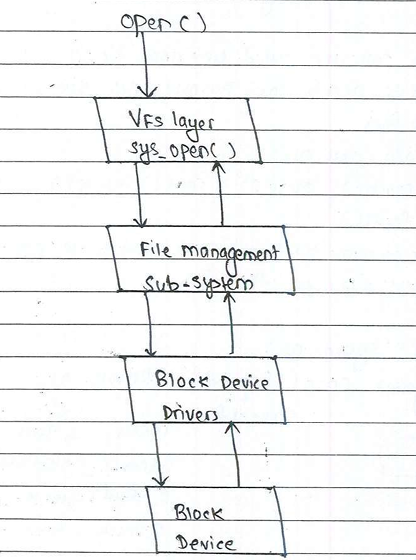 open()
VFs layer
sys_open()
File management
sub-system
Block Device
Drivers
Block
Device